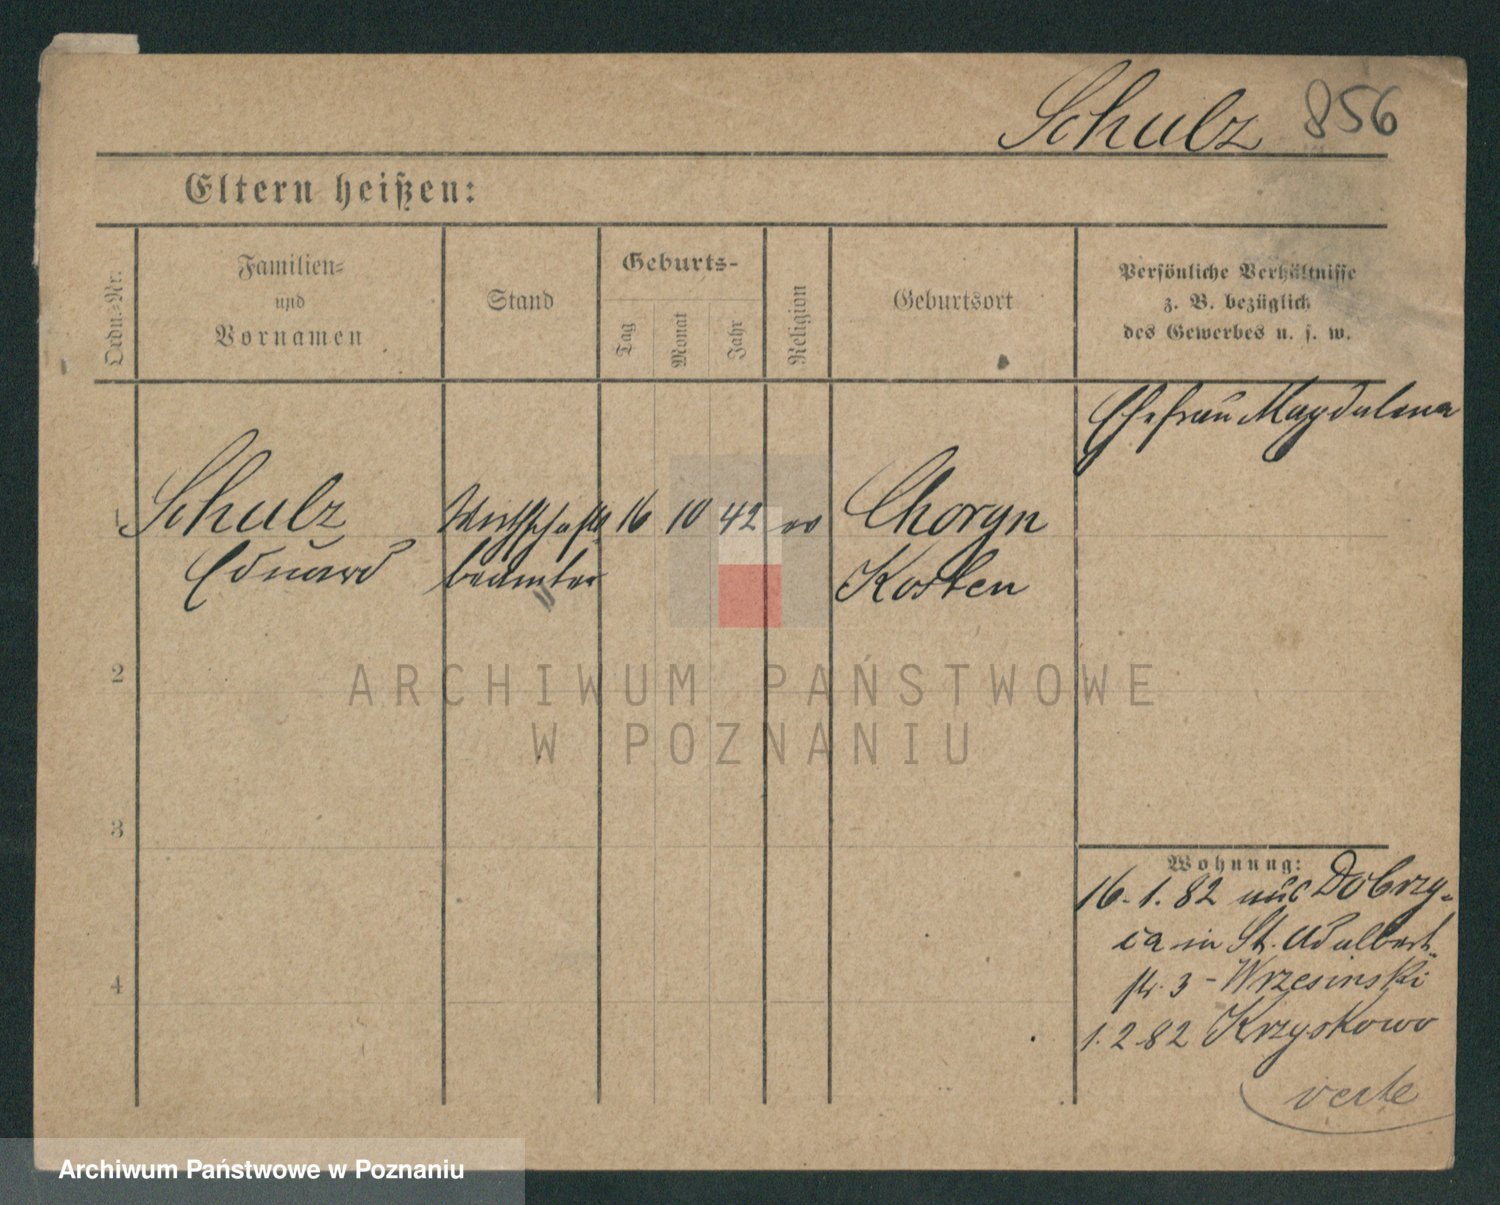 Schulz 856
Eltern heißen:
Ordn.-Nr.
Familien-
und
Vornamen
Stand
Geburts-
Tag
Monat
Jahr
Religion
Geburtsort
Persönliche Verhältnisse
z. B. bezüglich
des Gewerbes u. s. w.
Ehefrau Magdalena
1 Schulz Wirthschafts 16 10 42 Choryn
Eduard beamter Kosten
2
3
4
Wohnung:
16.1.82 aus Dobrzy-
ca in St. Adalbert-
str. 3 - Wrzesinski
1.2.82 Krzyskowo
verte
ARCHIWUM PAŃSTWOWE
W POZNANIU
Archiwum Państwowe w Poznaniu